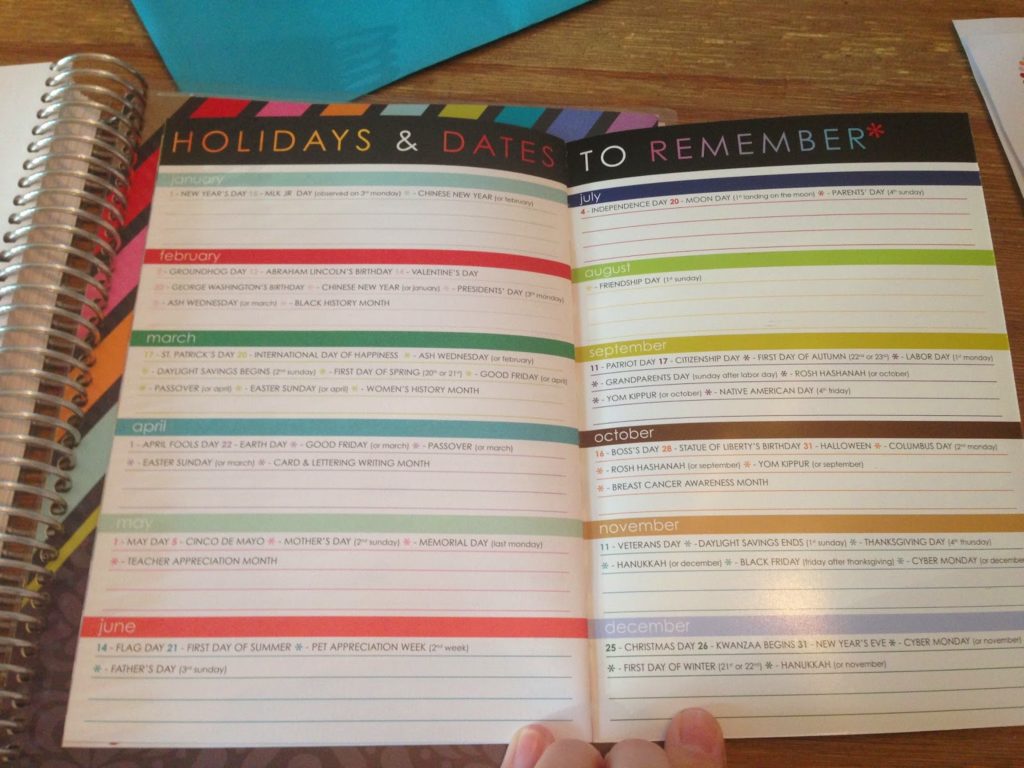 HOLIDAYS & DATES TO REMEMBER*
january
1 - NEW YEAR'S DAY 18 - MLK JR. DAY (observed on 3rd monday) * - CHINESE NEW YEAR (or february)
february
2 - GROUNDHOG DAY 12 - ABRAHAM LINCOLN'S BIRTHDAY 14 - VALENTINE'S DAY
22 - GEORGE WASHINGTON'S BIRTHDAY * - CHINESE NEW YEAR (or january) * - PRESIDENTS' DAY (3rd monday)
* - ASH WEDNESDAY (or march) * - BLACK HISTORY MONTH
march
17 - ST. PATRICK'S DAY 20 - INTERNATIONAL DAY OF HAPPINESS * - ASH WEDNESDAY (or february)
* - DAYLIGHT SAVINGS BEGINS (2nd sunday) * - FIRST DAY OF SPRING (20th or 21st) * - GOOD FRIDAY (or april)
* - PASSOVER (or april) * - EASTER SUNDAY (or april) * - WOMEN'S HISTORY MONTH
april
1 - APRIL FOOLS DAY 22 - EARTH DAY * - GOOD FRIDAY (or march) * - PASSOVER (or march)
* - EASTER SUNDAY (or march) * - CARD & LETTERING WRITING MONTH
may
1 - MAY DAY 5 - CINCO DE MAYO * - MOTHER'S DAY (2nd sunday) * - MEMORIAL DAY (last monday)
* - TEACHER APPRECIATION MONTH
june
14 - FLAG DAY 21 - FIRST DAY OF SUMMER * - PET APPRECIATION WEEK (2nd week)
* - FATHER'S DAY (3rd sunday)
july
4 - INDEPENDENCE DAY 20 - MOON DAY (1st landing on the moon) * - PARENTS' DAY (4th sunday)
august
* - FRIENDSHIP DAY (1st sunday)
september
11 - PATRIOT DAY 17 - CITIZENSHIP DAY * - FIRST DAY OF AUTUMN (22nd or 23rd) * - LABOR DAY (1st monday)
* - GRANDPARENTS DAY (sunday after labor day) * - ROSH HASHANAH (or october)
* - YOM KIPPUR (or october) * - NATIVE AMERICAN DAY (4th friday)
october
16 - BOSS'S DAY 28 - STATUE OF LIBERTY'S BIRTHDAY 31 - HALLOWEEN * - COLUMBUS DAY (2nd monday)
* - ROSH HASHANAH (or september) * - YOM KIPPUR (or september)
* - BREAST CANCER AWARENESS MONTH
november
11 - VETERANS DAY * - DAYLIGHT SAVINGS ENDS (1st sunday) * - THANKSGIVING DAY (4th thursday)
* - HANUKKAH (or december) * - BLACK FRIDAY (friday after thanksgiving) * - CYBER MONDAY (or december
december
25 - CHRISTMAS DAY 26 - KWANZAA BEGINS 31 - NEW YEAR'S EVE * - CYBER MONDAY (or november)
* - FIRST DAY OF WINTER (21st or 22nd) * - HANUKKAH (or november)